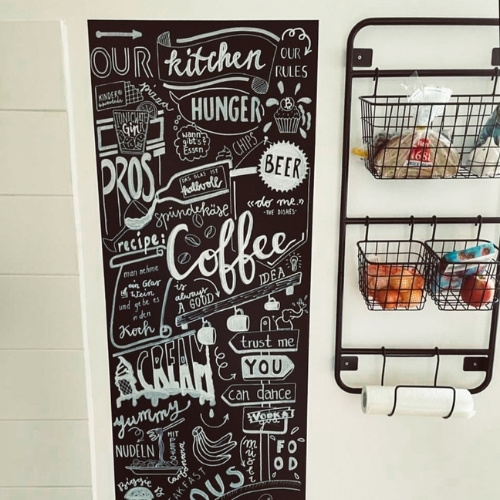 OUR
kitchen
OUR
RULES
KINDER
HUNGER
B
Gin
wann
gibt's
Essen
CHIPS
PROST
DAS GLAS IST
halbvoll
BEER
spundekäse
«do me»
-THE DISHES-
recipe:
Coffee
man nehme
ein Glas
Wein
und gebe es
in den
Koch
is
always
A GOOD
IDEA
trust me
YOU
can dance
VODKA
ICE CREAM
yummy
NUDELN
MIT
Carbonara
FOOD